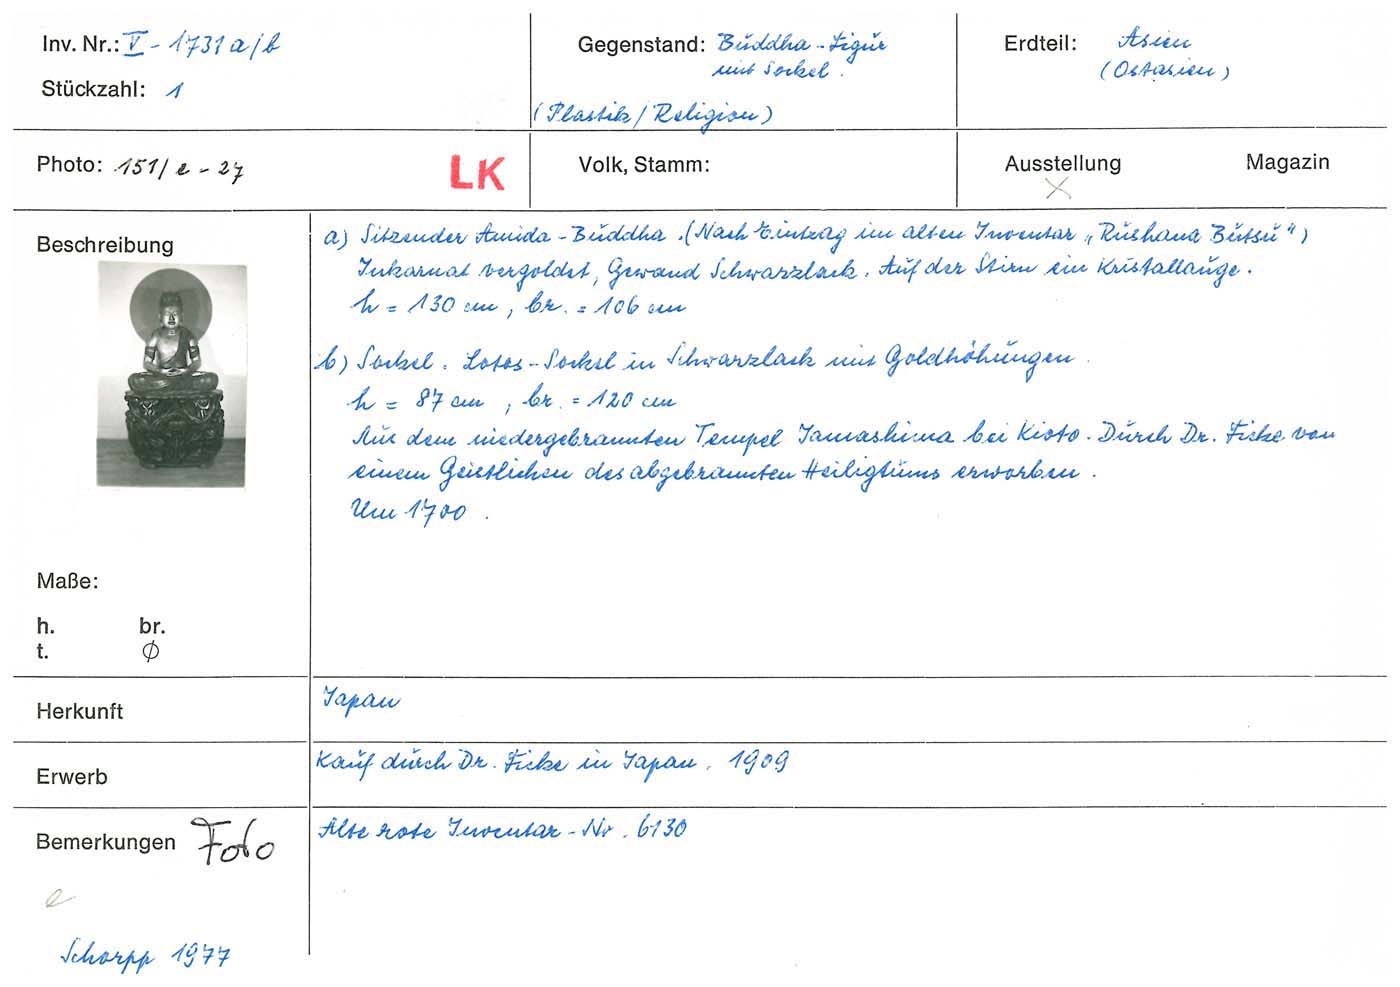 Inv. Nr.: V - 1731 a/b
Stückzahl: 1
Gegenstand: Buddha-Figur
mit Sockel.
(Plastik / Religion)
Erdteil: Asien
(Ostasien)
Photo: 151/e - 27
LK
Volk, Stamm:
Ausstellung
Magazin
X
Beschreibung
a) Sitzender Amida-Buddha. (Nach Eintrag im alten Inventar „Rushana Butsu“)
Inkarnat vergoldet, Gewand Schwarzlack. Auf der Stirn ein Kristallauge.
h = 130 cm, br. = 106 cm
b) Sockel. Lotos-Sockel in Schwarzlack mit Goldhöhungen.
h = 87 cm, br. = 120 cm
Aus dem niedergebrannten Tempel Yamashima bei Kioto. Durch Dr. Ficke von
einem Geistlichen des abgebrannten Heiligtums erworben.
Um 1700.
Maße:
h. br.
t. Ø
Herkunft
Japan
Erwerb
Kauf durch Dr. Ficke in Japan. 1909
Bemerkungen Foto
Alte rote Inventar-Nr. 6130
e
Schorpp 1977